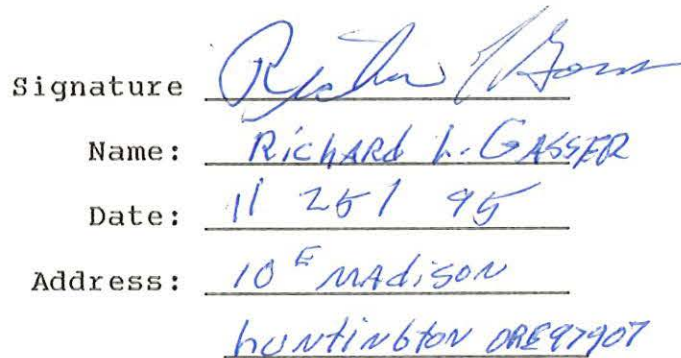 Signature
Name: RichARd L. GASSER
Date: 11 25 / 95
Address: 10 E MAdisoN
huNtiNgtoN ORE 97907